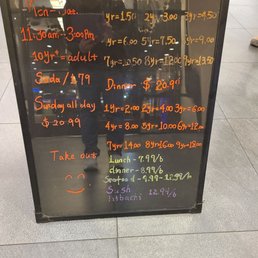 Mon - Sat.
11:30am - 3:00pm
10yr = adult
Soda 1.79
Sunday all day
$ 20.99
1yr = 1.50 2yr = 3.00 3yr = 4.50
4yr = 6.00 5yr = 7.50 6yr = 9.00
7yr = 10.50 8yr = 12.00 9yr = 13.50
Dinner $ 20.99
1yr = 2.00 2yr = 4.00 3yr = 6.00
4yr = 8.00 5yr = 10.00 6yr = 12.00
7yr = 14.00 8yr = 16.00 9yr = 18.00
Take out
Lunch - 7.99/b
dinner - 8.99/b
Seafood - 9.99 - 12.99/b
Sushi
hibachi 12.99/b